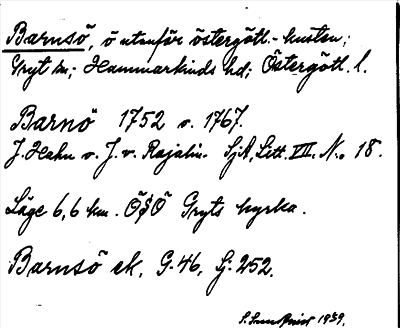 Barnsö, ö utanför östergötl.-kusten;
Gryt sn; Hammarkinds hd; Östergötl. l.
Barnö 1752 o. 1767.
J. Hahn o. J. v. Rajalin. SjA, Litt. VII. No 18.
Läge 6,6 km. ÖSÖ Gryts kyrka.
Barnsö ek. G. 46. Sj. 252.
1939.